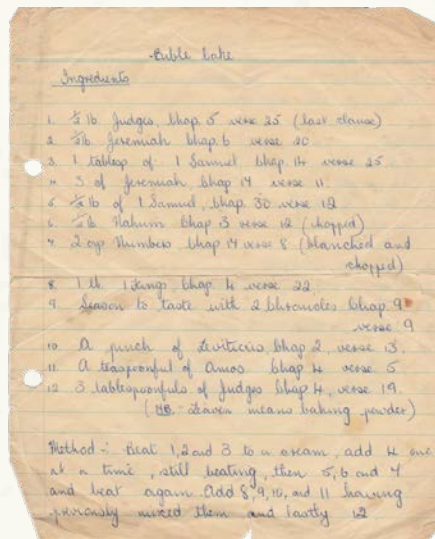 Bible Cake
Ingredients
1. ½ lb. Judges, Chap. 5 verse 25 (last clause)
2. ½ lb. Jeremiah Chap. 6 verse 20
3. 1 tablesp of 1 Samuel Chap. 14 verse 25.
4. 3 of Jeremiah Chap 17 verse 11
5. ½ lb of 1 Samuel, Chap. 30 verse 12
6. ½ lb. Nahum Chap 3 verse 12 (chopped)
7. 2 ozs Numbers Chap 17 verse 8 (blanched and
chopped)
8. 1 lb. 1 Kings, Chap 4 verse 22
9. Season to taste with 2 Chronicles Chap. 9
verse 9
10. A pinch of Leviticus, Chap 2, verse 13.
11. A teaspoonful of Amos Chap 4 verse 5
12. 3 tablespoonfuls of Judges Chap 4, verse 19.
(NB. - Leaven means baking powder)
Method :- Beat 1, 2 and 3 to a cream, add 4 one
at a time, still beating, then 5, 6 and 7
and beat again. Add 8, 9, 10, and 11 having
previously mixed them and lastly 12